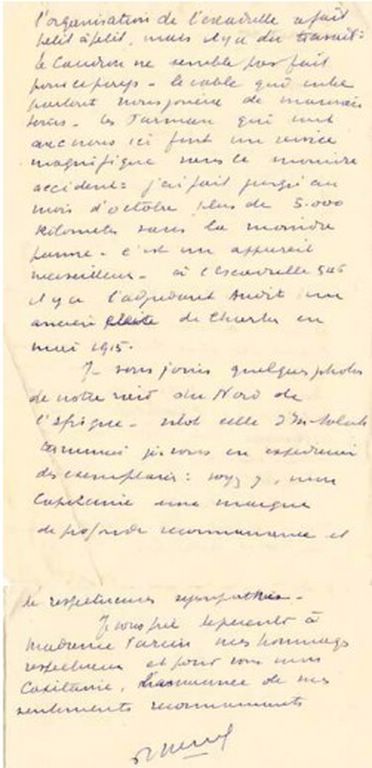 l'organisation de l'escadrille se fait
petit à petit, mais il y a du travail:
le Caudron ne semble pas fait
pour ce pays - le sable qui entre
partout nous joue de mauvais
tours - les Farman qui sont
avec nous ici font un service
magnifique sans le moindre
accident: j'ai fait jusqu'au
mois d'octobre plus de 5.000
kilomètres sans la moindre
panne - c'est un appareil
merveilleux - à l'Escadrille 546
il y a l'adjudant un
ancien de Chartres en
mai 1915.
Je vous joins quelques photos
de notre raid du Nord de
l'Afrique - celle d'In-Salah
je vous en
des exemplaires: voyez y, mon
Capitaine une marque
de profonde reconnaissance et
de respectueuse sympathie -
Je vous prie de présenter à
Madame mes hommages
respectueux et pour vous mon
Capitaine, l'assurance de mes
sentiments reconnaissants